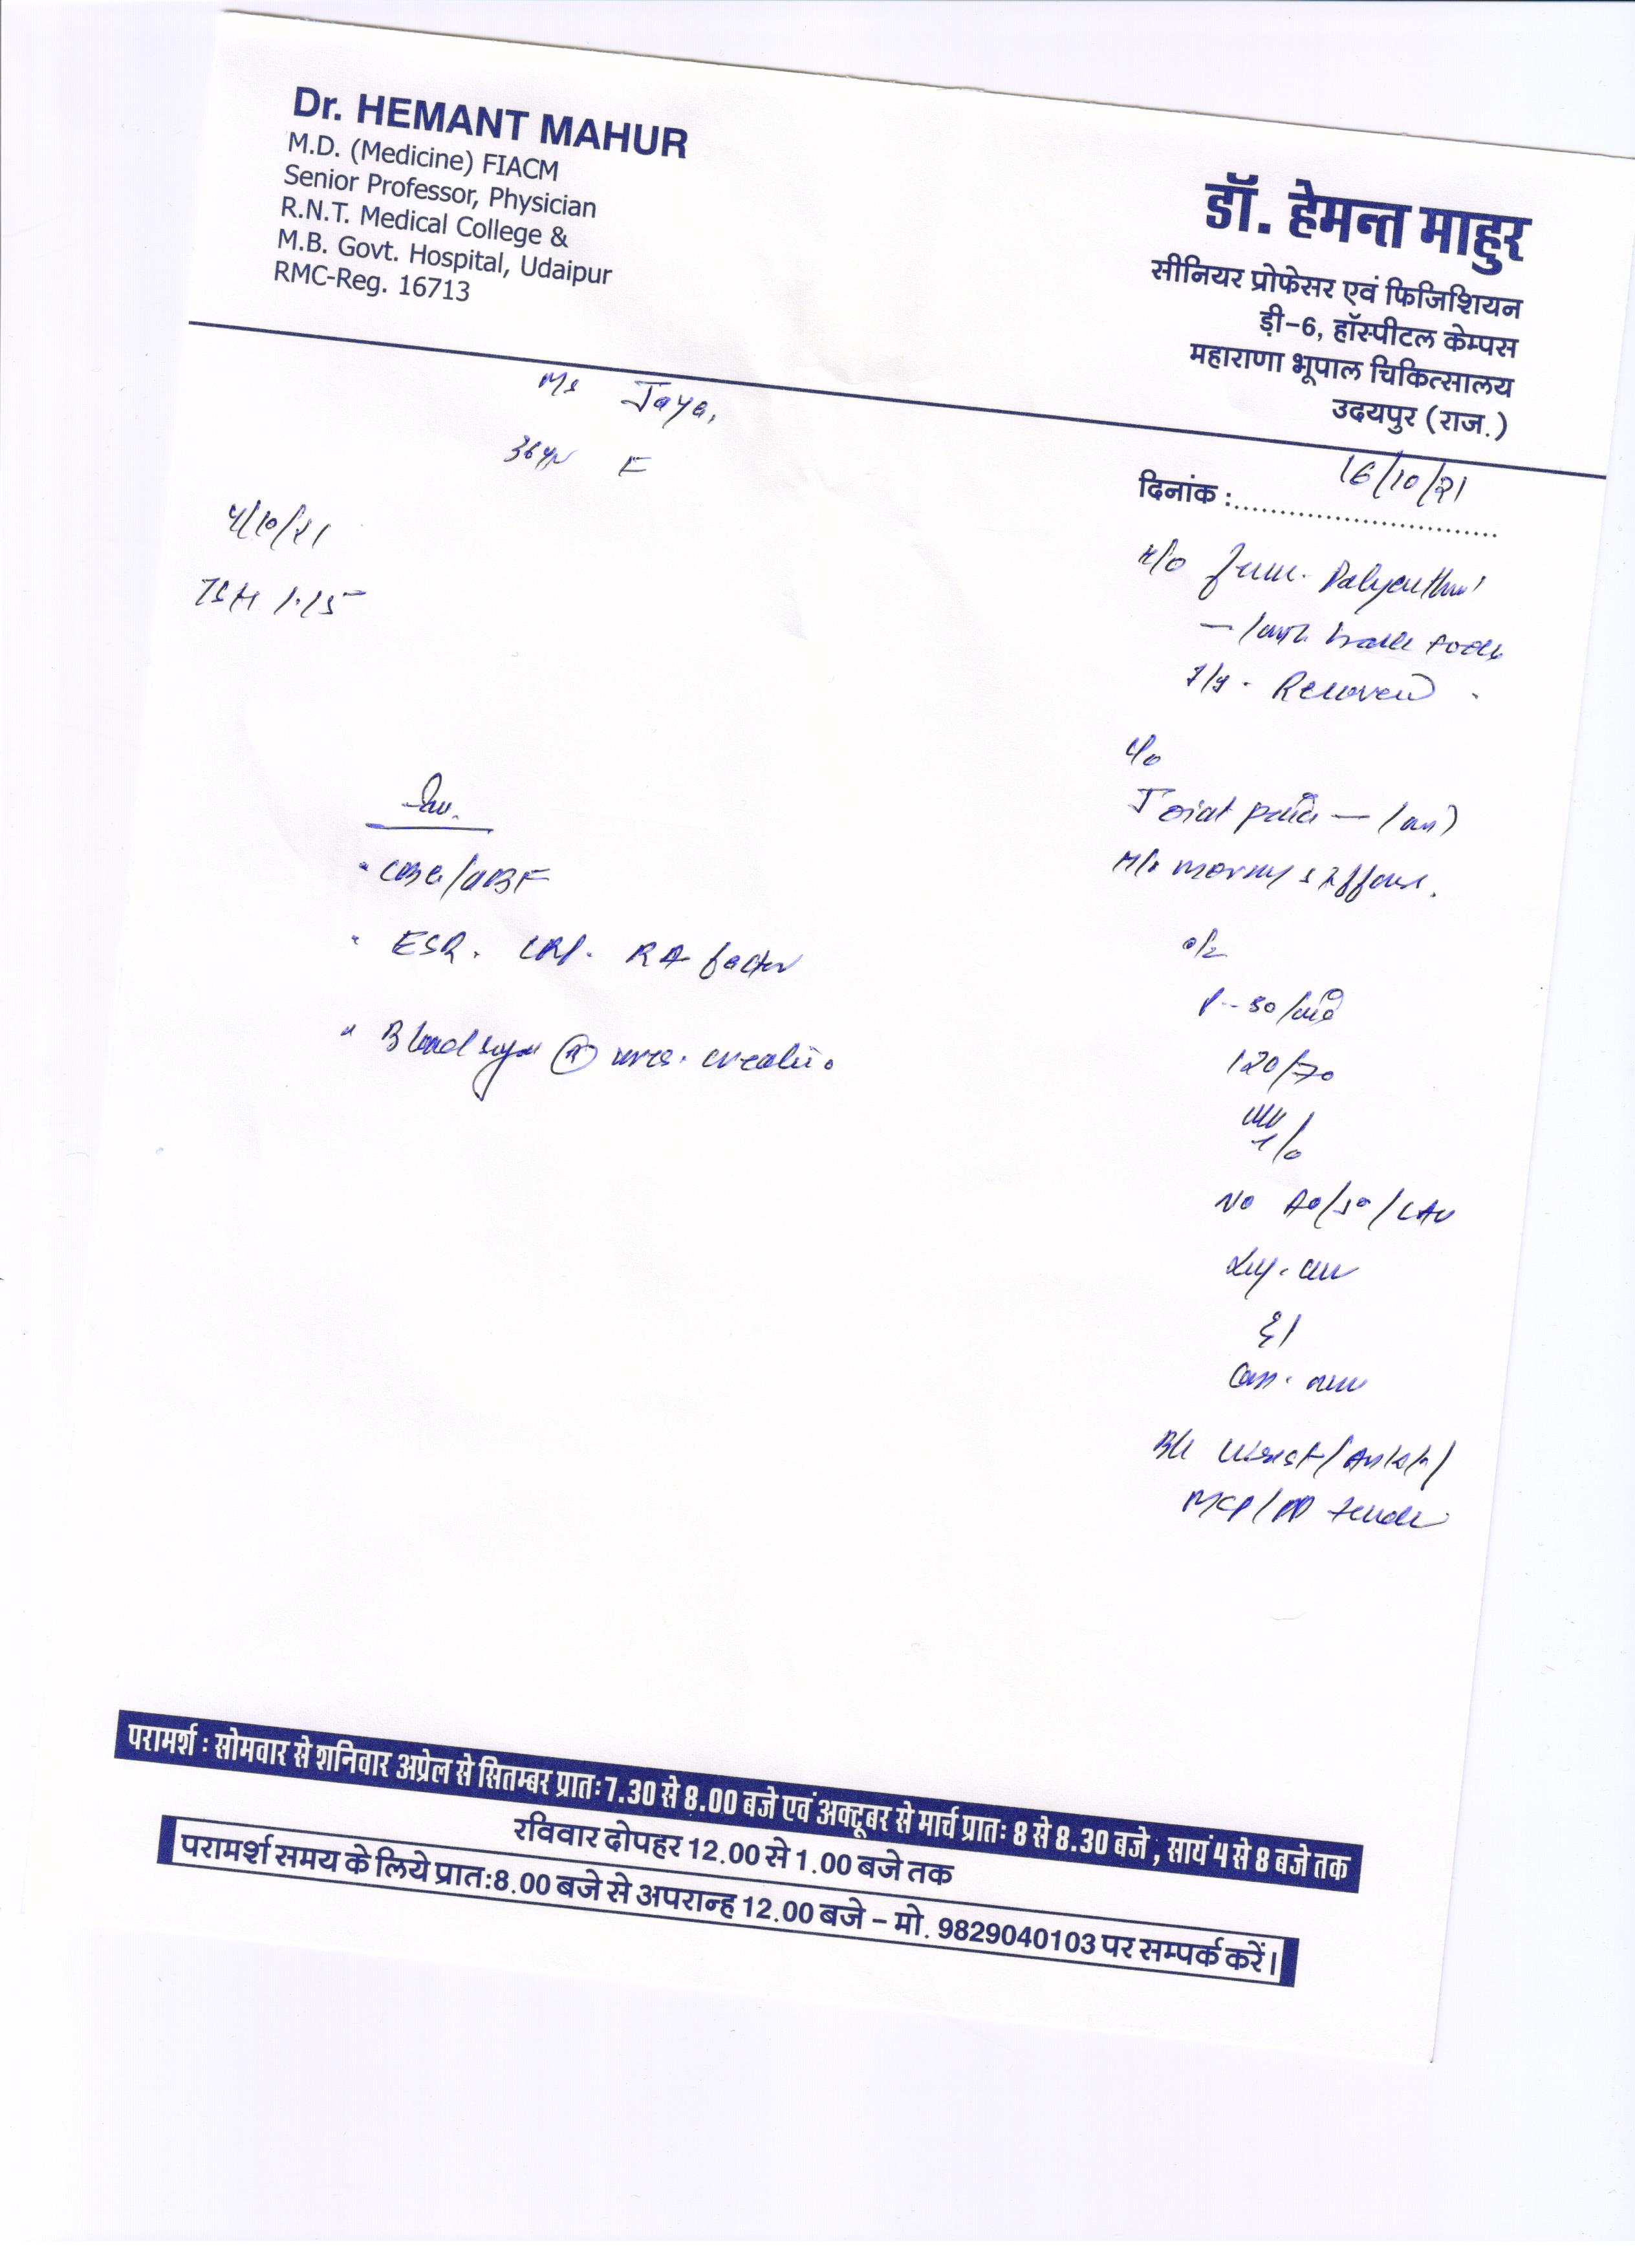 Dr. HEMANT MAHUR
M.D. (Medicine) FIACM
Senior Professor, Physician
R.N.T. Medical College &
M.B. Govt. Hospital, Udaipur
RMC-Reg. 16713
डॉ. हेमन्त माहुर
सीनियर प्रोफेसर एवं फिजिशियन
ड़ी-6, हॉस्पीटल केम्पस
महाराणा भूपाल चिकित्सालय
उदयपुर (राज.)
दिनांक : 16/10/21
Ms Jaya,
36 yr F
/10/21
TSH 1.15
Inv.
CBC/PBF
ESR. CRP. RA factor
Blood sugar (R) urea. creatin
H/o Polyarthri
Recovered
C/o
Joint pain
H/o morny stiffns.
O/E
P - 80/min
120/70
No
Wrist/Ankle/
MCP/ tender
परामर्श : सोमवार से शनिवार अप्रेल से सितम्बर प्रातः 7.30 से 8.00 बजे एवं अक्टूबर से मार्च प्रातः 8 से 8.30 बजे, सायं 4 से 8 बजे तक
रविवार दोपहर 12.00 से 1.00 बजे तक
परामर्श समय के लिये प्रातः 8.00 बजे से अपरान्ह 12.00 बजे – मो. 9829040103 पर सम्पर्क करें।